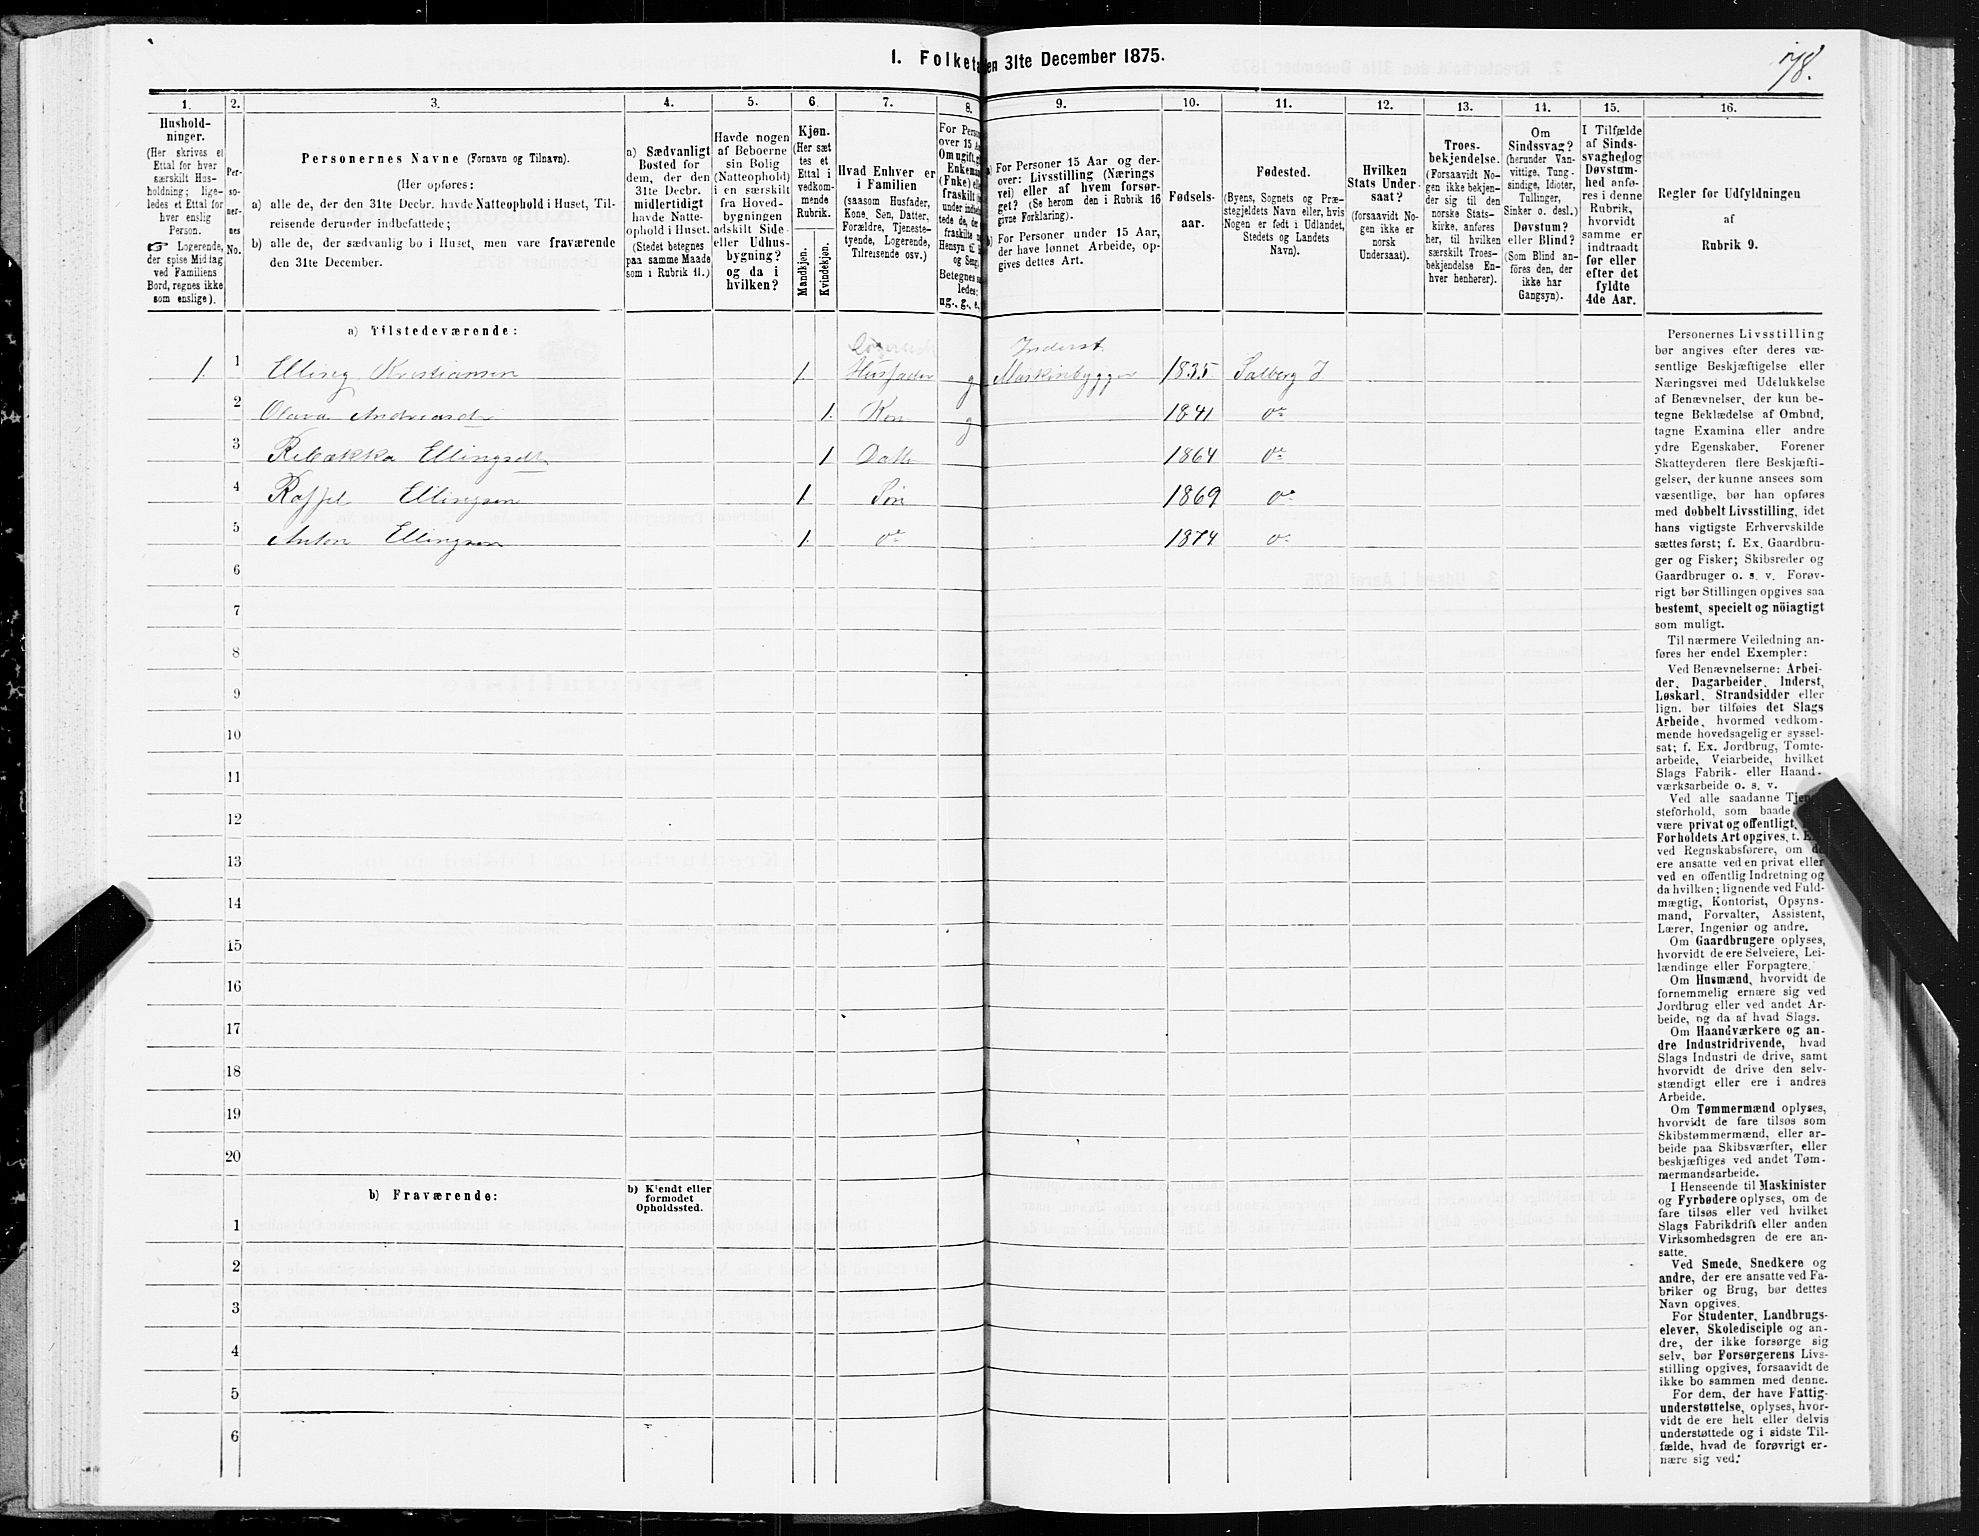 1. Folketæ
en 31te December 1875.
78.
1. 2. 3. 4. 5. 6. 7. 8. 9. 10. 11. 12. 13. 14. 15. 16.
Hushold-
ninger.
(Her skrives et
Ettal for hver
særskilt Hus-
holdning; lige-
ledes et Ettal for
hver enslig
Person.
☞ Logerende,
der spise Middag
ved Familiens
Bord, regnes ikke
som enslige).
Per-
so-
ner-
nes
No.
Personernes Navne (Fornavn og Tilnavn).
(Her opføres:
a) alle de, der den 31te Decbr. havde Natteophold i Huset, Til-
reisende derunder indbefattede;
b) alle de, der sædvanlig bo i Huset, men vare fraværende
den 31te December.
a) Sædvanligt
Bosted for
dem, der den
31te Decbr.
midlertidigt
havde Natte-
ophold i Huset.
(Stedet betegnes
paa samme Maade
som i Rubrik 11.)
Havde nogen
af Beboerne
sin Bolig
(Natteophold)
i en særskilt
fra Hoved-
bygningen
adskilt Side-
eller Udhus-
bygning?
og da i
hvilken?
Kjøn.
(Her sæt
tes et
Ettal i
vedkom-
mende
Rubrik.
Mandkjøn.
Kvindekjøn.
Hvad Enhver er
i Familien
(saasom Husfader,
Kone, Søn, Datter,
Forældre, Tjeneste-
tyende, Logerende,
Tilreisende osv.)
For Perso
over 15 A
Om ugift, gi
Enkeman
(Enke) elle
fraskilt
under indbefat
tede de, der
fraskilte
Hensyn til
og Seng.
Betegnes
ledes:
ug., g., e.
a) For Personer 15 Aar og der-
over: Livsstilling (Nærings
vei) eller af hvem forsør-
get? (Se herom den i Rubrik 16
givne Forklaring).
b) For Personer under 15 Aar,
der have lønnet Arbeide, op-
gives dettes Art.
Fødsels-
aar.
Fødested.
(Byens, Sognets og Præ-
stegjeldets Navn eller, hvis
Nogen er født i Udlandet,
Stedets og Landets
Navn).
Hvilken
Stats Under-
saat?
(forsaavidt No-
gen ikke er
norsk
Undersaat).
Troes-
bekjendelse.
(Forsaavidt No-
gen ikke bekjen-
der sig til den
norske Stats-
kirke, anføres
her, til hvilken
særskilt Troes-
bekjendelse En-
hver henhører).
Om
Sindssvag?
(herunder Van-
vittige, Tung-
sindige, Idioter,
Tullinger,
Sinker o. desl.)
Døvstum?
eller Blind?
(Som Blind an-
føres den, der
ikke har
Gangsyn).
I Tilfælde
af Sinds-
svaghed og
Døvstum-
hed anfø-
res i denne
Rubrik,
hvorvidt
samme er
indtraadt
før eller
efter det
fyldte
4de Aar.
Regler for Udfyldningen
af
Rubrik 9.
a) Tilstedeværende:
Inderst.
1 1 Elling Kristiansen 1 Husfader g Maskinbygger 1835 Salberg I
2 Olava Andreasd 1 Kon g 1841 do
3 Rebækka Ellingsdt 1 Datt 1864 do
4 Ellingsen 1 Søn 1869 do
5 Anton Ellingsen 1 do 1874 do
6
7
8
9
10
11
12
13
14
15
16
17
18
19
20
b) Fraværende:
b) Kjendt eller
formodet
Opholdssted.
1
2
3
4
5
6
Personernes Livsstilling
bør angives efter deres væ-
sentlige Beskjæftigelse eller
Næringsvei med Udelukkelse
af Benævnelser, der kun be-
tegne Beklædelse af Ombud,
tagne Examina eller andre
ydre Egenskaber. Forener
Skatteyderen flere Beskjæfti-
gelser, der kunne ansees som
væsentlige, bør han opføres
med dobbelt Livsstilling, idet
hans vigtigste Erhvervskilde
sættes først; f. Ex. Gaardbru-
ger og Fisker; Skibsreder og
Gaardbruger o. s. v. Forøv-
rigt bør Stillingen opgives saa
bestemt, specielt og nöiagtigt
som muligt.
Til nærmere Veiledning an-
føres her endel Exempler:
Ved Benævnelserne: Arbei-
der, Dagarbeider, Inderst,
Løskarl, Strandsidder eller
lign. bør tilføies det Slags
Arbeide, hvormed vedkom-
mende hovedsagelig er syssel-
sat; f. Ex. Jordbrug, Tomte-
arbeide, Veiarbeide, hvilket
Slags Fabrik- eller Haand-
værksarbeide o. s. v.
Ved alle saadanne Tjene
steforhold, som baade
være privat og offentligt,
Forholdets Art opgives, t. Ex.
ved Regnskabsførere, om de
ere ansatte ved en privat eller
ved en offentlig Indretning og
da hvilken; lignende ved Fuld-
mægtig, Kontorist, Opsyns-
mand, Forvalter, Assistent,
Lærer, Ingeniør og andre.
Om Gaardbrugere oplyses,
hvorvidt de ere Selveiere, Lei-
lændinge eller Forpagtere.
Om Husmænd, hvorvidt de
fornemmelig ernære sig ved
Jordbrug eller ved andet Ar-
beide, og da af hvad Slags.
Om Haandværkere og an-
dre Industridrivende, hvad
Slags Industri de drive, samt
hvorvidt de drive den selv-
stændigt eller ere i andres
Arbeide.
Om Tømmermænd oplyses,
hvorvidt de fare tilsøs som
Skibstømmermænd, eller ar-
beide paa Skibsværfter, eller
beskjæftiges ved andet Tøm-
mermandsarbeide.
I Henseende til Maskinister
og Fyrbødere oplyses, om de
fare tilsøs eller ved hvilket
Slags Fabrikdrift eller anden
Virksomhedsgren de ere an-
satte.
Ved Smede, Snedkere og
andre, der ere ansatte ved Fa-
briker og Brug, bør dettes
Navn opgives.
For Studenter, Landbrugs-
elever, Skoledisciple og an-
dre, der ikke forsørge sig
selv, bør Forsørgerens Livs-
stilling opgives, forsaavidt de
ikke bo sammen med denne.
For dem, der have Fattig-
understøttelse, oplyses, hvor-
vidt de ere helt eller delvis
understøttede og i sidste Til-
fælde, hvad de forøvrigt er-
nære sig ved.